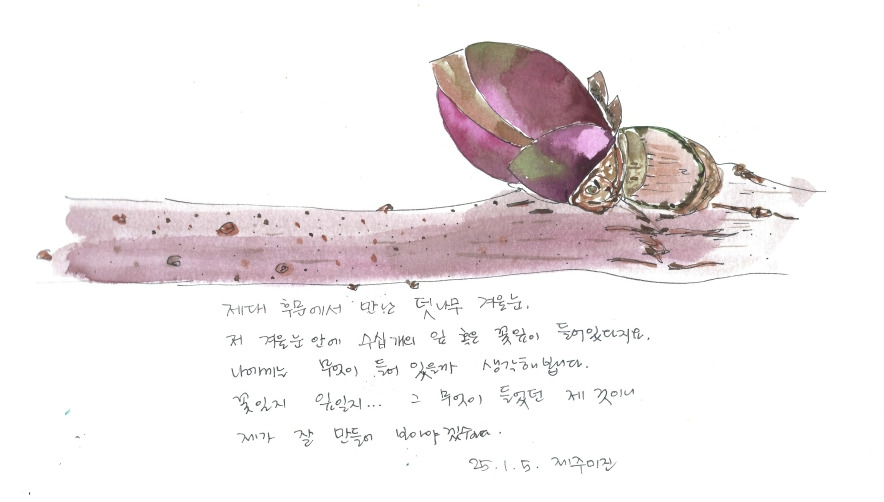 제대 후문에서 만난 덧나무 겨울눈.
저 겨울눈 안에 수십개의 잎 혹은 꽃잎이 들어있다지요.
나에게는 무엇이 들어 있을까 생각해 봅니다.
꽃일지 잎일지... 그 무엇이 들었던 제 것이니
제가 잘 만들어 보아야 겠습니다.
25.1.5. 제주미진